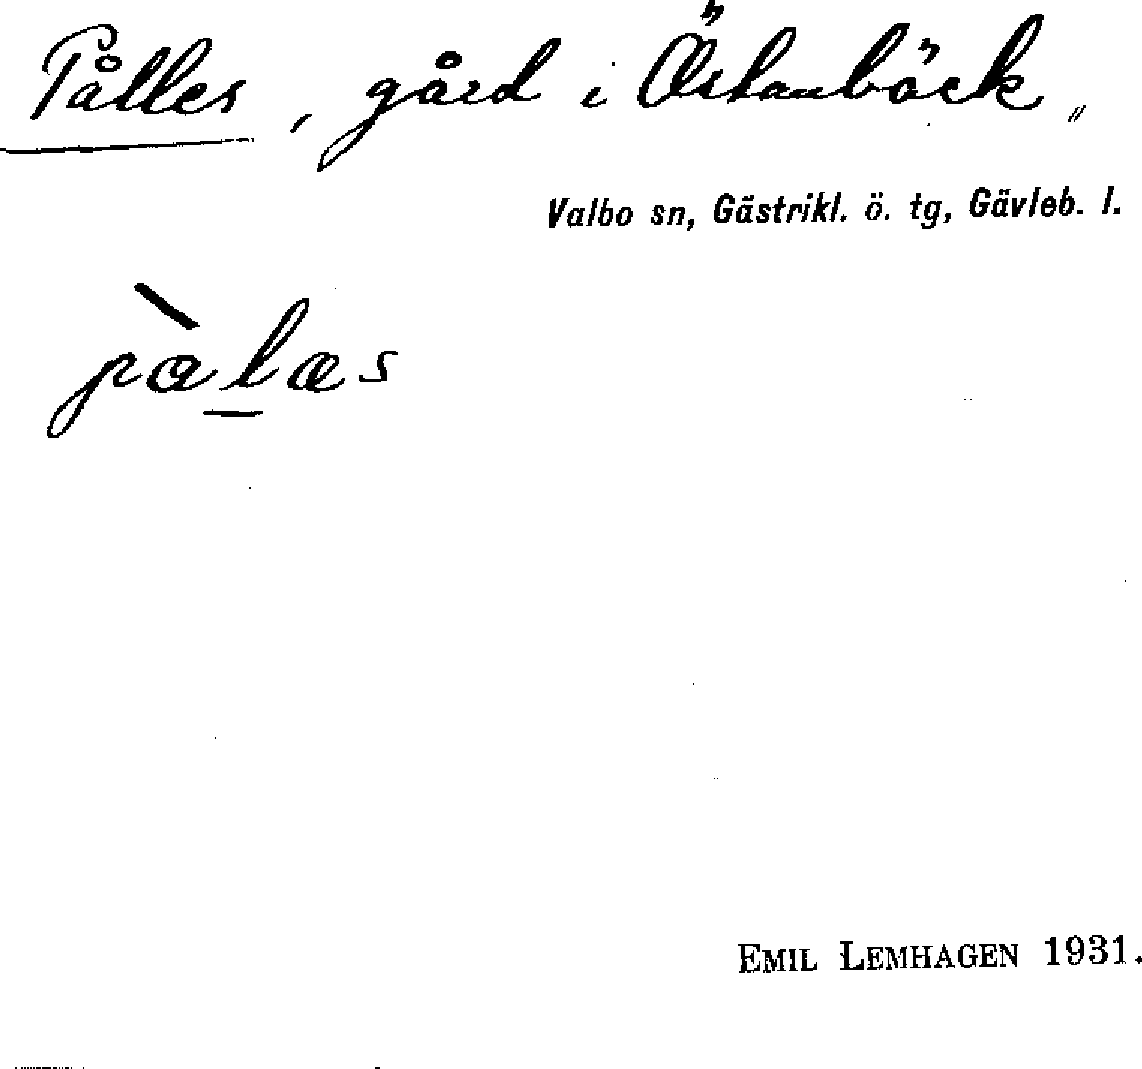 Pålles, gård i Östanbäck,
Valbo sn, Gästrikl. ö. tg, Gävleb. l.
pàlæs
EMIL LEMHAGEN 1931.